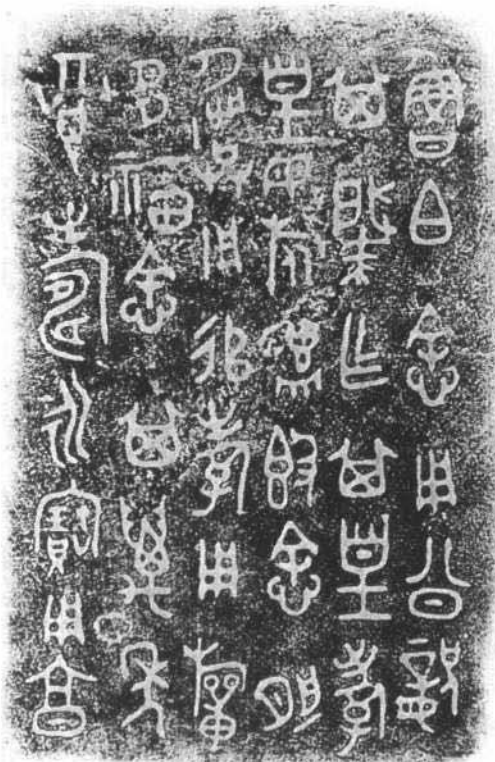 魯白悆用公龏
其肇乍其皇孝
皇母旅盨𣪘悆夙
興用追孝用旂
多福悆其萬年
眉壽永寶用亯